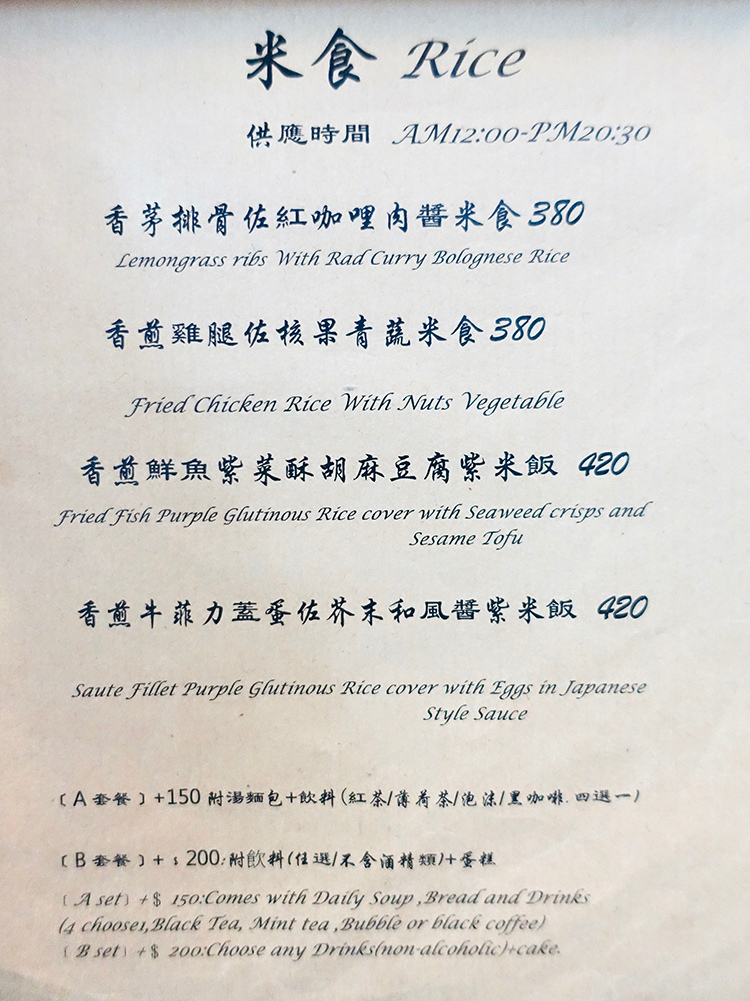 米食 Rice
供應時間 AM12:00-PM20:30
香茅排骨佐紅咖哩肉醬米食380
Lemongrass ribs With Rad Curry Bolognese Rice
香煎雞腿佐核果青蔬米食380
Fried Chicken Rice With Nuts Vegetable
香煎鮮魚紫菜酥胡麻豆腐紫米飯 420
Fried Fish Purple Glutinous Rice cover with Seaweed crisps and
Sesame Tofu
香煎牛菲力蓋蛋佐芥末和風醬紫米飯 420
Saute Fillet Purple Glutinous Rice cover with Eggs in Japanese
Style Sauce
〔A 套餐〕+150 附湯麵包+飲料(紅茶/薄荷茶/泡沫/黑咖啡.四選一)
〔B 套餐〕+$200:附飲料(任選/不含酒精類)+蛋糕
〔A set〕+$ 150:Comes with Daily Soup ,Bread and Drinks
(4 choose1,Black Tea, Mint tea ,Bubble or black coffee)
〔B set〕+$ 200:Choose any Drinks(non-alcoholic)+cake.